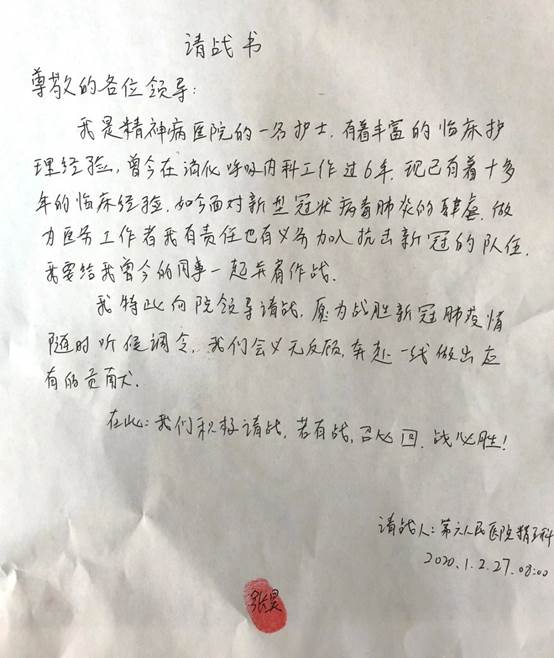 请战书
尊敬的各位领导:
我是精神病医院的一名护士.有着丰富的临床护
理经验,曾今在消化呼吸内科工作过6年.现已有着十多
年的临床经验.如今面对新型冠状病毒肺炎的肆虐.做
为医务工作者我有责任也有义务加入抗击新冠的队伍.
我要给我曾今的同事一起并肩作战.
我特此向院领导请战.愿为战胜新冠肺疫情
随时听候调令.我们会义无反顾,奔赴一线做出应
有的贡献.
在此:我们积极请战,若有战,召必回.战必胜!
请战人:第六人民医院精三科
2020.1.2.27.08:00
张昊